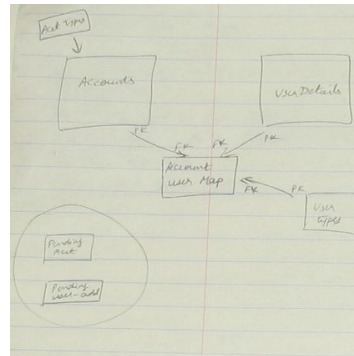 Acct types
Accounts
User Details
PK
PK
FK
FK
Account
User Map
FK
PK
User
types
Pending
Acct
Pending
User-add